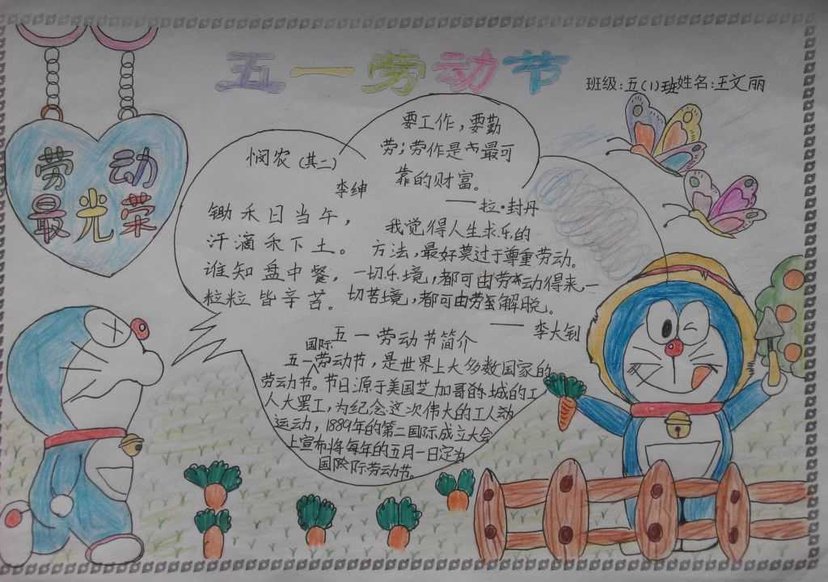 五一劳动节
班级:五(1)班姓名:王文丽
劳动
最光荣
要工作,要勤
劳;劳作是最可
靠的财富。
——拉·封丹
悯农(其二)
李绅
锄禾日当午,
汗滴禾下土。
谁知盘中餐,
粒粒皆辛苦。
我觉得人生求乐的
方法,最好莫过于尊重劳动。
一切乐境,都可由劳动得来,一
切苦境,都可由劳解脱。
——李大钊
国际五一劳动节简介
五一劳动节,是世界上大多数国家的
劳动节。节日源于美国芝加哥的城的工
人大罢工,为纪念这次伟大的工人动
运动,1889年的第二国际成立大会
上宣布将每年的五月一日定为
国际际劳动节。